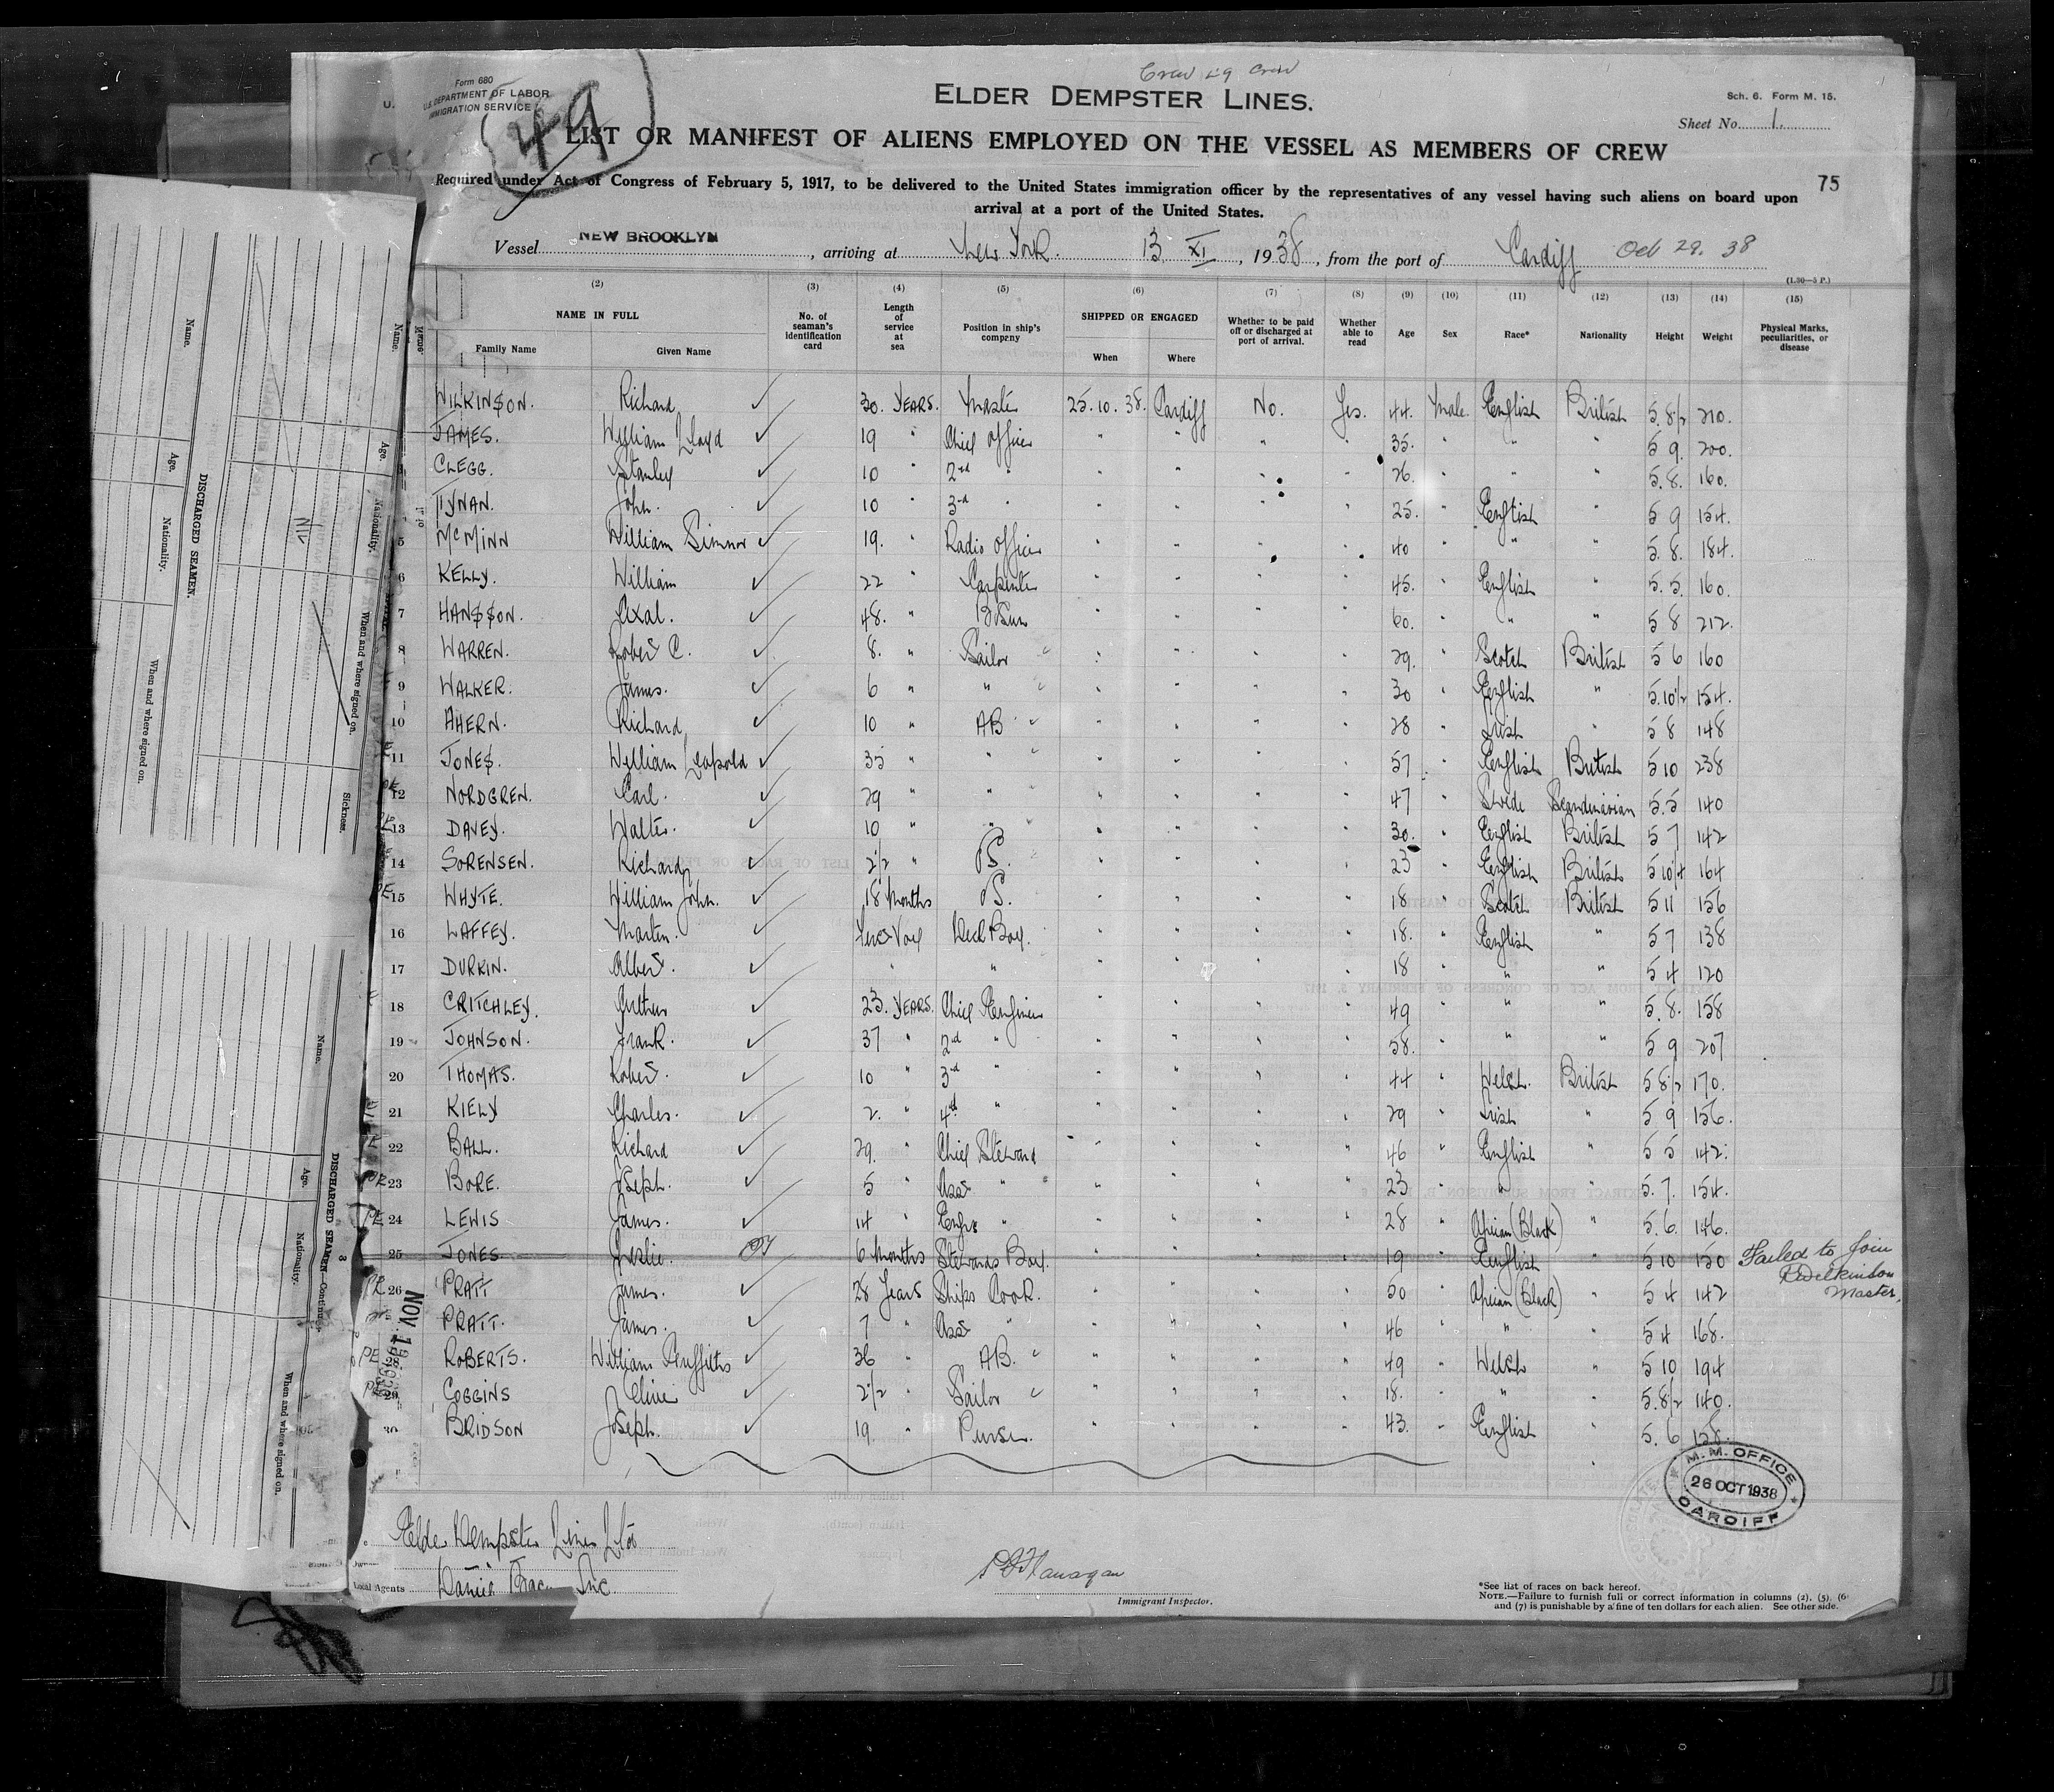 Crew 29 Crew
Form 680
U.S. DEPARTMENT OF LABOR
IMMIGRATION SERVICE
49
ELDER DEMPSTER LINES.
Sch. 6. Form M. 15.
Sheet No. 1.
LIST OR MANIFEST OF ALIENS EMPLOYED ON THE VESSEL AS MEMBERS OF CREW
75
Required under Act of Congress of February 5, 1917, to be delivered to the United States immigration officer by the representatives of any vessel having such aliens on board upon
arrival at a port of the United States.
Vessel NEW BROOKLYN, arriving at New York 13 XI, 1938, from the port of Cardiff Oct 29. 38
(1.30—5 P.)
(2) (3) (4) (5) (6) (7) (8) (9) (10) (11) (12) (13) (14) (15)
NAME IN FULL Family Name Given Name No. of seaman's identification card Length of service at sea Position in ship's company SHIPPED OR ENGAGED When Where Whether to be paid off or discharged at port of arrival. Whether able to read Age Sex Race* Nationality Height Weight Physical Marks, peculiarities, or disease
WILKIN$ON. Richard ✓ 30. YEARS. Master 25.10.38. Cardiff No. Yes. 44. Male. English British 5.8½ 210.
JAMES. William Lloyd ✓ 19 " Chief Officer " " " " 35. " " " 5 9. 200.
CLEGG. Stanley ✓ 10 " 2nd " " " " " 26. " " " 5.8. 160.
TYNAN. John. ✓ 10 " 3rd " " " " " 25. " English " 5 9 154.
5 McMINN William ✓ 19. " Radio Officer " " " " 40 " " " 5.8. 184.
6 KELLY. William ✓ 22 " Carpenter " " " " 45. " English " 5.5. 160.
7 HAN$$ON. Axal. ✓ 48. " BoSun " " " " 60. " " " 5 8 212.
8 WARREN. Robert C. ✓ 8. " Sailor " " " " 29. " Scotch British 5 6 160
9 WALKER. James. ✓ 6 " " " " " " 30 " English " 5.10½ 154.
10 AHERN. Richard ✓ 10 " AB " " " " 28 " Irish " 5 8 148
11 JONE$. William Leopold ✓ 35 " " " " " " 57 " English British 5 10 238
12 NORDGREN. Carl. ✓ 29 " " " " " " 47 " Swede Scandinavian 5.5 140
13 DAVEY. Walter. ✓ 10 " " " " " " 30. " English British 5 7 142
14 SORENSEN. Richard ✓ 2½ " OS. " " " " 23 " English British 5 10¼ 164
15 WHYTE. William John. ✓ 18 Months OS. " " " " 18 " Scotch British 5 11 156
16 LAFFEY. Martin. ✓ First Voy Deck Boy. " " " " 18. " English " 5 7 138
17 DURKIN. Albert. ✓ " " " " " " 18 " " " 5 4 120
18 CRITCHLEY. Arthur ✓ 23. YEARS. Chief Engineer " " " " 49 " " " 5.8. 158
19 JOHNSON. Frank. ✓ 37 " 2nd " " " " " 58. " " " 5 9 207
20 THOMAS. Robert. ✓ 10 " 3rd " " " " " 44 " Welch. British 5 8½ 170.
21 KIELY Charles. ✓ 2. " 4th " " " " " 29 " Irish " 5 9 156.
22 BALL. Richard ✓ 29. " Chief Steward " " " " 46 " English " 5 5 142.
23 BORE. Joseph. ✓ 5 " Asst " " " " " 23 " " " 5.7. 154.
24 LEWIS James. ✓ 14 " Engrs " " " " " 28 " African (Black) " 5.6. 146.
25 JONES Leslie. 6 Months Stewards Boy. " " " " 19 " English " 5 10 150 Failed to Join
R Wilkinson
Master.
26 PRATT James. ✓ 28 Years Ships Cook. " " " " 50 " African (Black) " 5 4 142
PRATT. James. ✓ 7 " Asst " " " " " 46 " " " 5 4 168.
28 ROBERTS. William Griffiths ✓ 36 " AB. " " " " 49 " Welch " 5 10 194
29 COGGINS Clive ✓ 2½ " Sailor " " " " 18. " " " 5.8½ 140.
30 BRIDSON Joseph. ✓ 19. " Purser. " " " " 43. " English " 5.6 158.
M.M. OFFICE
26 OCT 1938
CARDIFF
NOV 1938
Elder Dempster Lines Ltd
Local Agents Daniel Inc.
Immigrant Inspector.
*See list of races on back hereof.
NOTE.—Failure to furnish full or correct information in columns (2), (5), (6)
and (7) is punishable by a fine of ten dollars for each alien. See other side.
DISCHARGED SEAMEN.
Name. Age. Nationality. When and where signed on. Sickness.
NIL
DISCHARGED SEAMEN—Continued
Name. Age. Nationality. When and where signed on.